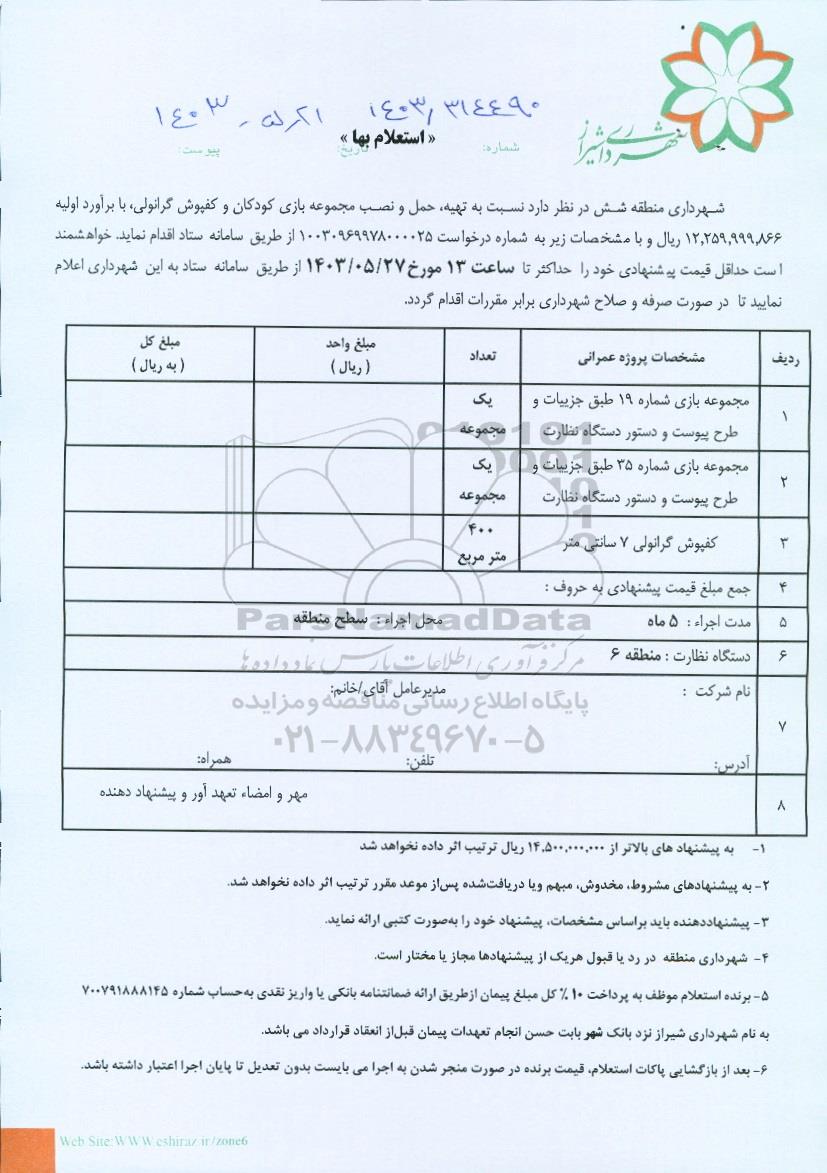 شهرداری شیراز
۱۴۰۳/۳۱۴۴۹۰
« استعلام بها »
شماره: تاریخ: پیوست:
شهرداری منطقه شش در نظر دارد نسبت به تهیه، حمل و نصب مجموعه بازی کودکان و کفپوش گرانولی، با برآورد اولیه
۱۲,۲۵۹,۹۹۹,۸۶۶ ریال و با مشخصات زیر به شماره درخواست ۱۰۰۳۰۹۶۹۹۷۸۰۰۰۰۲۵ از طریق سامانه ستاد اقدام نماید. خواهشمند
است حداقل قیمت پیشنهادی خود را حداکثر تا ساعت ۱۳ مورخ ۱۴۰۳/۰۵/۲۷ از طریق سامانه ستاد به این شهرداری اعلام
نمایید تا در صورت صرفه و صلاح شهرداری برابر مقررات اقدام گردد.
ردیف مشخصات پروژه عمرانی تعداد مبلغ واحد ( ریال ) مبلغ کل ( به ریال )
۱ مجموعه بازی شماره ۱۹ طبق جزییات و یک
طرح پیوست و دستور دستگاه نظارت مجموعه
۲ مجموعه بازی شماره ۳۵ طبق جزییات و یک
طرح پیوست و دستور دستگاه نظارت مجموعه
۳ کفپوش گرانولی ۷ سانتی متر ۴۰۰ متر مربع
۴ جمع مبلغ قیمت پیشنهادی به حروف :
۵ مدت اجراء : ۵ ماه محل اجراء : سطح منطقه
ParsNamadData
۶ دستگاه نظارت : منطقه ۶
مرکز فرآوری اطلاعات پارس نماد داده ها
۷ نام شرکت : مدیرعامل آقای/خانم:
پایگاه اطلاع رسانی مناقصه و مزایده
۰۲۱-۸۸۳۴۹۶۷۰-۵
آدرس: تلفن: همراه:
۸ مهر و امضاء تعهد آور و پیشنهاد دهنده
۱- به پیشنهاد های بالاتر از ۱۴,۵۰۰,۰۰۰,۰۰۰ ریال ترتیب اثر داده نخواهد شد
۲- به پیشنهادهای مشروط، مخدوش، مبهم ویا دریافت‌شده پس‌از موعد مقرر ترتیب اثر داده نخواهد شد.
۳- پیشنهاددهنده باید براساس مشخصات، پیشنهاد خود را به‌صورت کتبی ارائه نماید.
۴- شهرداری منطقه در رد یا قبول هریک از پیشنهادها مجاز یا مختار است.
۵- برنده استعلام موظف به پرداخت ۱۰ % کل مبلغ پیمان ازطریق ارائه ضمانتنامه بانکی یا واریز نقدی به‌حساب شماره ۷۰۰۷۹۱۸۸۸۱۴۵
به نام شهرداری شیراز نزد بانک شهر بابت حسن انجام تعهدات پیمان قبل‌از انعقاد قرارداد می باشد.
۶- بعد از بازگشایی پاکات استعلام، قیمت برنده در صورت منجر شدن به اجرا می بایست بدون تعدیل تا پایان اجرا اعتبار داشته باشد.
Web Site:WWW.eshiraz.ir/zone6